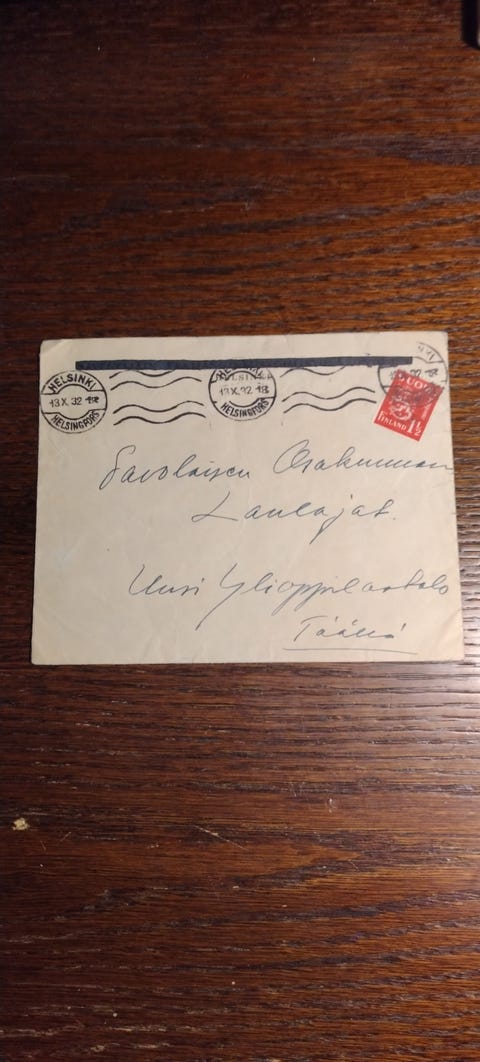 HELSINKI
13.X.32
HELSINGFORS
HELSINKI
13.X.32
HELSINGFORS
SUOMI
FINLAND 1½
Savolaisen Osakunnan
Laulajat.
Uusi Ylioppilastalo
Täällä